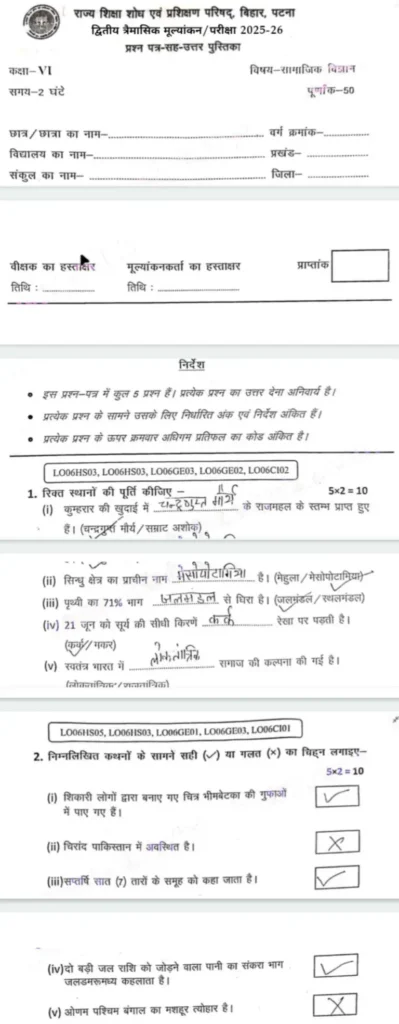 राज्य शिक्षा शोध एवं प्रशिक्षण परिषद्, बिहार, पटना
द्वितीय त्रैमासिक मूल्यांकन/परीक्षा 2025-26
प्रश्न पत्र-सह-उत्तर पुस्तिका
कक्षा-VI विषय-सामाजिक विज्ञान
समय-2 घंटे पूर्णांक-50
छात्र/छात्रा का नाम- वर्ग क्रमांक-
विद्यालय का नाम- प्रखंड-
संकुल का नाम- जिला-
वीक्षक का हस्ताक्षर मूल्यांकनकर्ता का हस्ताक्षर प्राप्तांक
तिथि : तिथि :
निर्देश
• इस प्रश्न-पत्र में कुल 5 प्रश्न हैं। प्रत्येक प्रश्न का उत्तर देना अनिवार्य है।
• प्रत्येक प्रश्न के सामने उसके लिए निर्धारित अंक एवं निर्देश अंकित हैं।
• प्रत्येक प्रश्न के ऊपर क्रमवार अधिगम प्रतिफल का कोड अंकित है।
LO06HS03, LO06HS03, LO06GE03, LO06GE02, LO06CI02
1. रिक्त स्थानों की पूर्ति कीजिए – 5×2 = 10
(i) कुम्हरार की खुदाई में चन्द्रगुप्त मौर्य के राजमहल के स्तम्भ प्राप्त हुए
हैं। (चन्द्रगुप्त मौर्य/सम्राट अशोक)
(ii) सिन्धु क्षेत्र का प्राचीन नाम मेसोपोटामिया है। (मेहुला/मेसोपोटामिया)
(iii) पृथ्वी का 71% भाग जलमंडल से घिरा है। (जलमंडल/स्थलमंडल)
(iv) 21 जून को सूर्य की सीधी किरणें कर्क रेखा पर पड़ती है।
(कर्क/मकर)
(v) स्वतंत्र भारत में लोकतांत्रिक समाज की कल्पना की गई है।
LO06HS05, LO06HS03, LO06GE01, LO06GE03, LO06CI01
2. निम्नलिखित कथनों के सामने सही (✓) या गलत (×) का चिह्न लगाइए–
5×2 = 10
(i) शिकारी लोगों द्वारा बनाए गए चित्र भीमबेटका की गुफाओं ✓
में पाए गए हैं।
(ii) चिरांद पाकिस्तान में अवस्थित है। ×
(iii) सप्तर्षि सात (7) तारों के समूह को कहा जाता है। ✓
(iv) दो बड़ी जल राशि को जोड़ने वाला पानी का संकरा भाग ✓
जलडमरूमध्य कहलाता है।
(v) ओणम पश्चिम बंगाल का मशहूर त्योहार है। ×